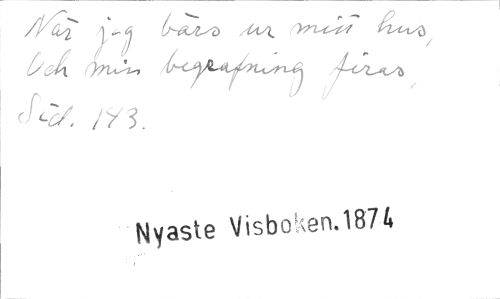 När jag bärs ur mitt hus,
Och min begrafning firas,
Sid. 143.
Nyaste Visboken. 1874